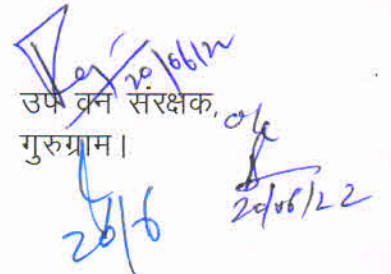 20/06/22
उप वन संरक्षक,
गुरुग्राम।
20/06/22
20/6